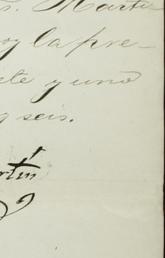 r. Marti
oy la pre-
ete y uno
y seis.
rtín